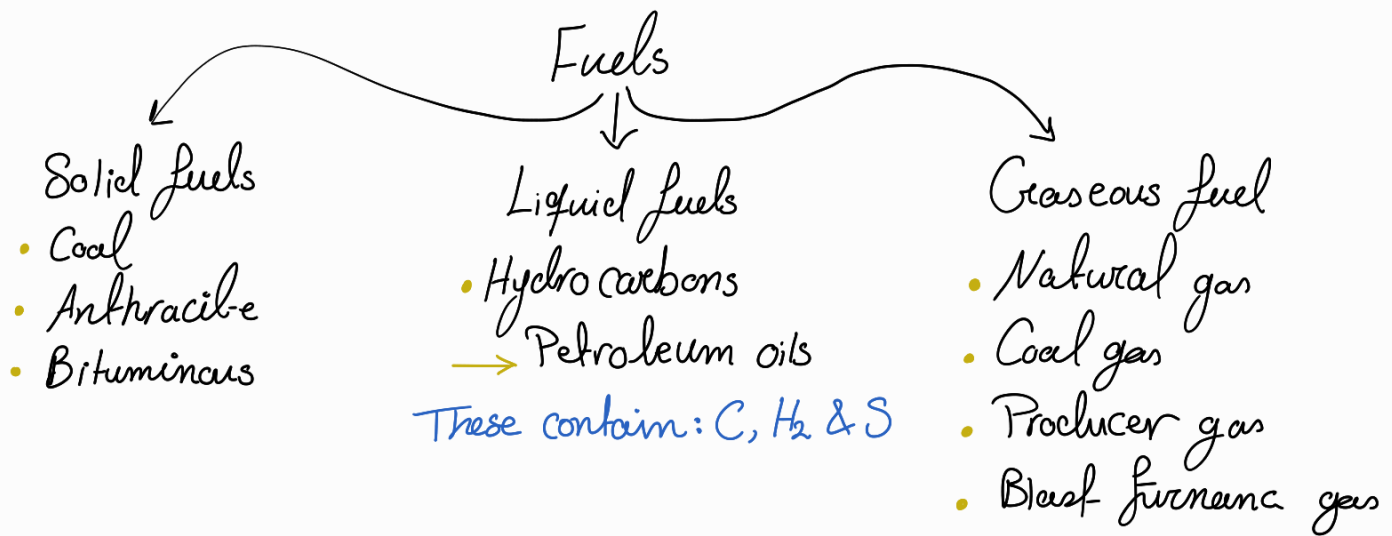 Fuels
Solid fuels
• Coal
• Anthracite
• Bituminous
Liquid fuels
• Hydrocarbons
→ Petroleum oils
These contain: C, H₂ & S
Gaseous fuel
• Natural gas
• Coal gas
• Producer gas
• Blast furnana gas